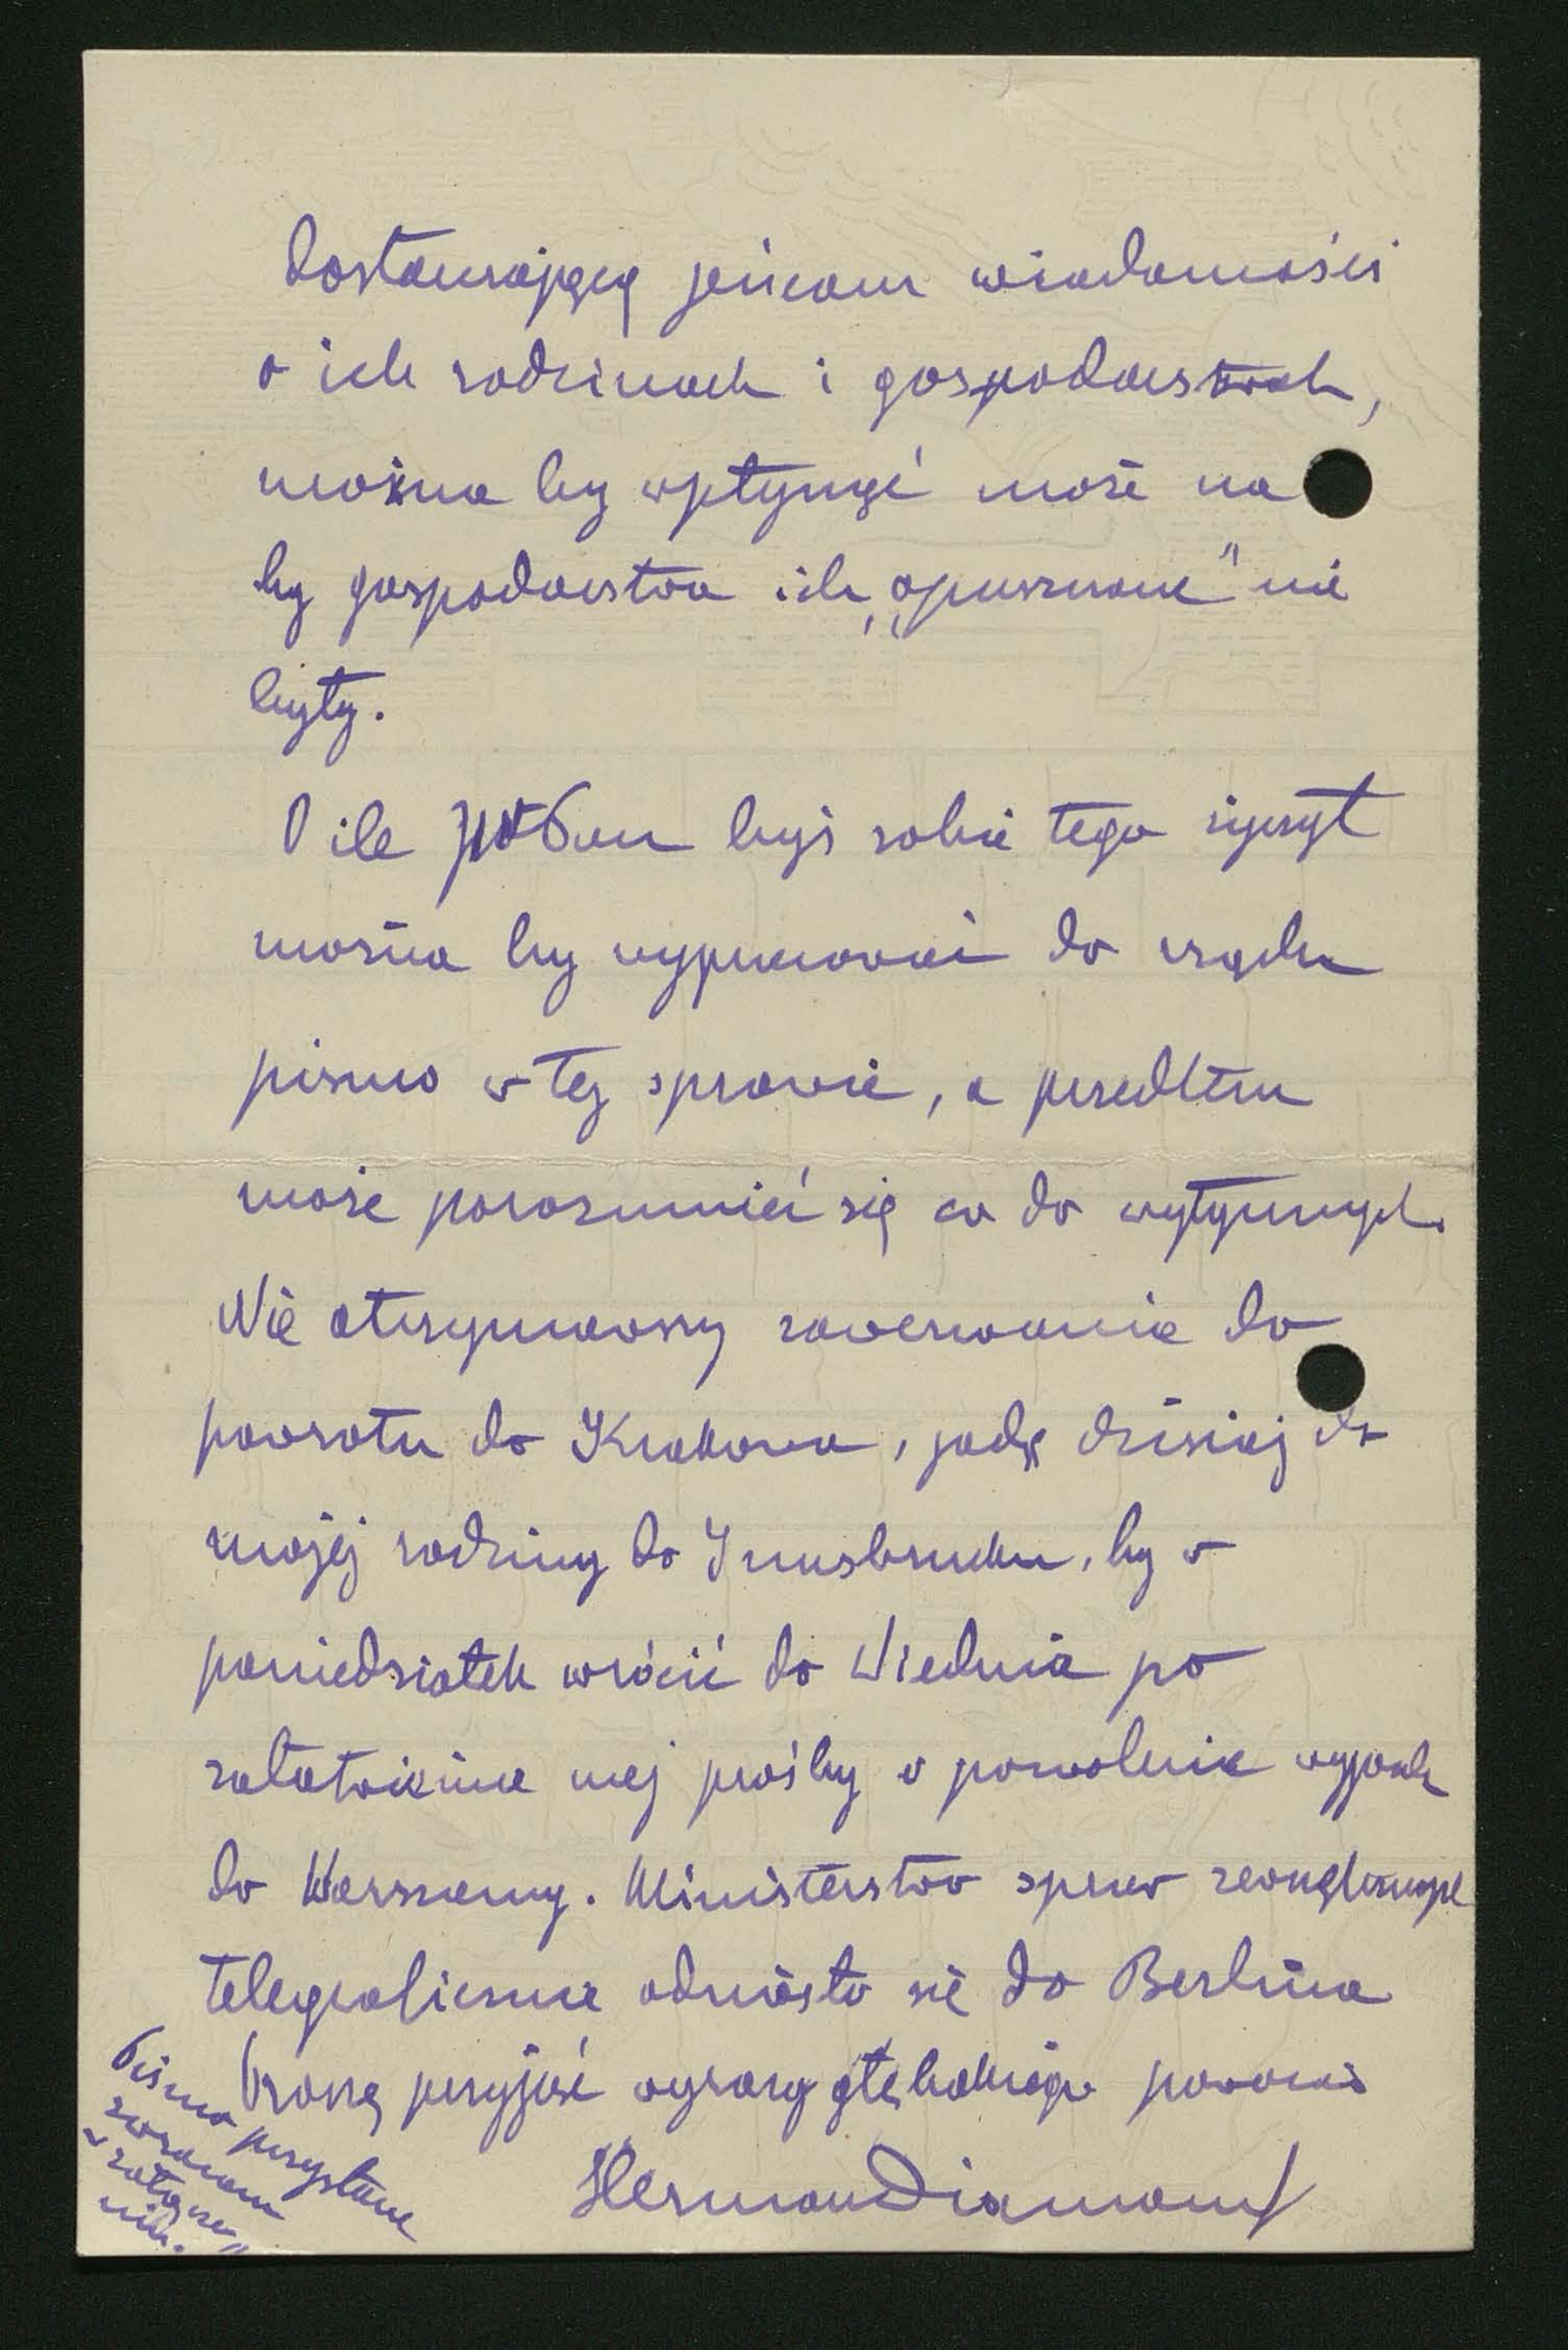 dostarczającą jeńcom wiadomości
o ich rodzinach i gospodarstwach,
można by wpłynąć może na
by gospodarstwa ich „opuszczone" nie
były.
O ile Pan byś sobie tego życzył
można by wypracować do rządu
pismo w tej sprawie, a przedtem
może porozumieć się co do wytycznych.
Nie otrzymawszy zawezwania do
powrotu do Krakowa, jadę dzisiaj do
mojej rodziny do Innsbruku, by w
poniedziałek wrócić do Wiednia po
załatwienie mej prośby o pozwolenie wyjazdu
do Warszawy. Ministerstwo spraw zewnętrznych
telegraficznie odniosło się do Berlina
Proszę przyjąć wyrazy głębokiego poważania
Herman Diamand
Pismo przysłane
zwracam
w załącze=
niu.